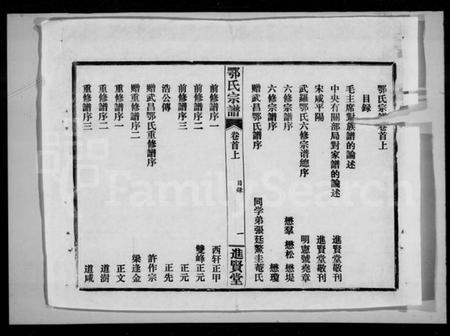 鄂氏宗譜卷首上
目録
毛主席對族譜的論述 進賢堂敬刊
中央有關部局對家譜的論述 進賢堂敬刊
宋咸平陽
武羅鄂氏六修宗譜總序 明憲號堯章
六修宗譜序 懋羣 懋松 懋堤
六修譜序 懋瓊
贈武昌鄂氏譜序 同学弟張廷鰲圭菴氏
鄂氏宗譜 卷首上 目録 一 進賢堂
前修譜序一 西軒正甲
前修譜序二 雙峰正元
前修譜序三 正元
浩公傳 正先
贈武昌鄂氏重修譜序 許作宗
贈重修譜序二 梁逢金
重修譜序一 正文
重修譜序二 道澍
重修譜序三 道咸
FamilySearch